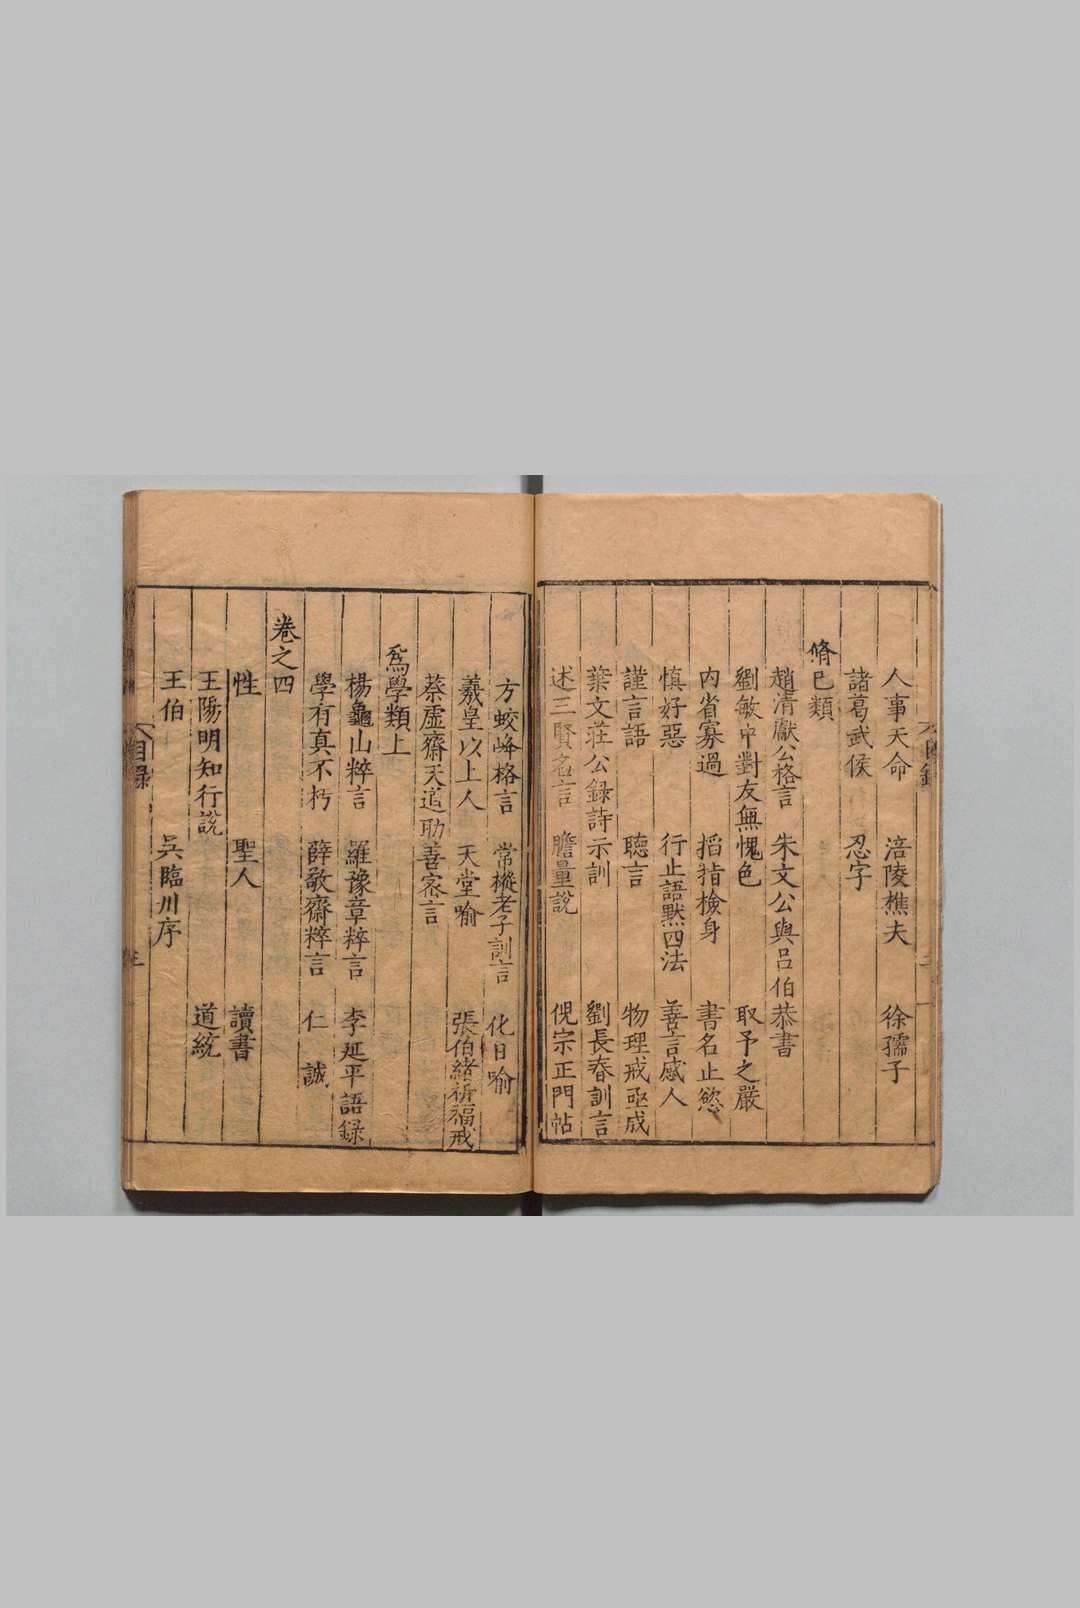 人事天命 涪陵樵夫 徐孺子
諸葛武侯 忍字
脩巳類
趙清獻公格言 朱文公與吕伯恭書
劉敏中對友無愧色 取予之嚴
内省寡過 搯指檢身 書名止慾
慎好惡 行止語黙四法 善言感人
謹言語 聽言 物理戒亟成
葉文莊公録詩示訓 劉長春訓言
述三賢名言 膽量說 倪宗正門帖
方蛟峰格言 常樅老子訓言 化日喻
羲皇以上人 天堂喻 張伯緒祈福戒
蔡虛齋天道助善宻言
爲學類上
楊龜山粹言 羅豫章粹言 李延平語録
學有真不朽 薛敬齋粹言 仁 誠
卷之四
性 聖人 讀書
王陽明知行說 道統
王伯 吳臨川序
目録